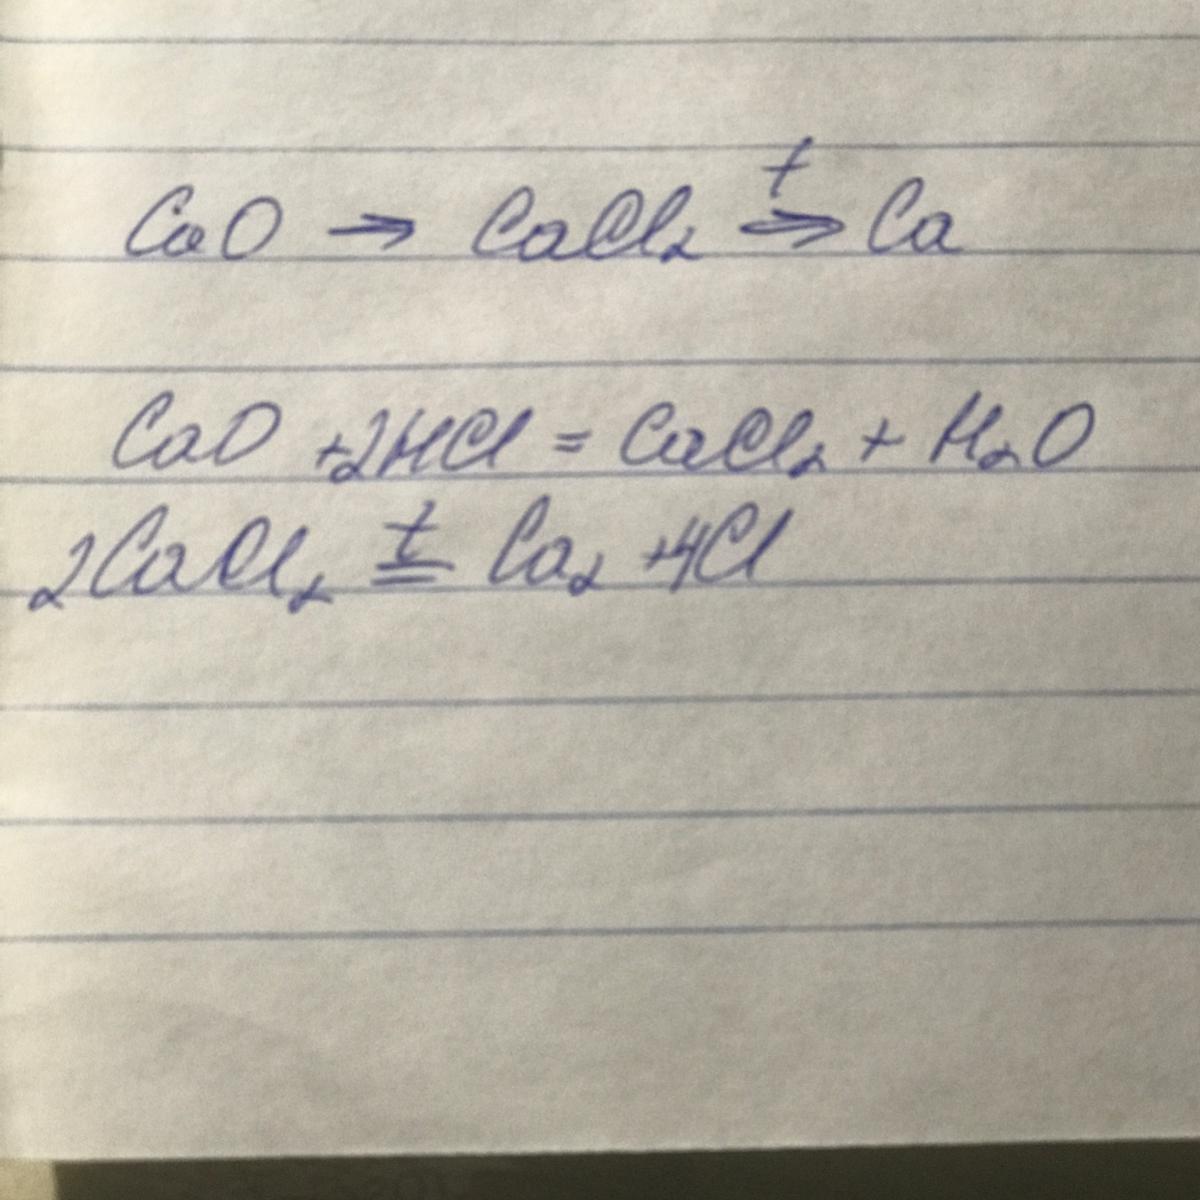 CaO → CaCl₂ t⇒ Ca
CaO +2HCl = CaCl₂ + H₂O
2CaCl₂ t= Ca₂ +4Cl